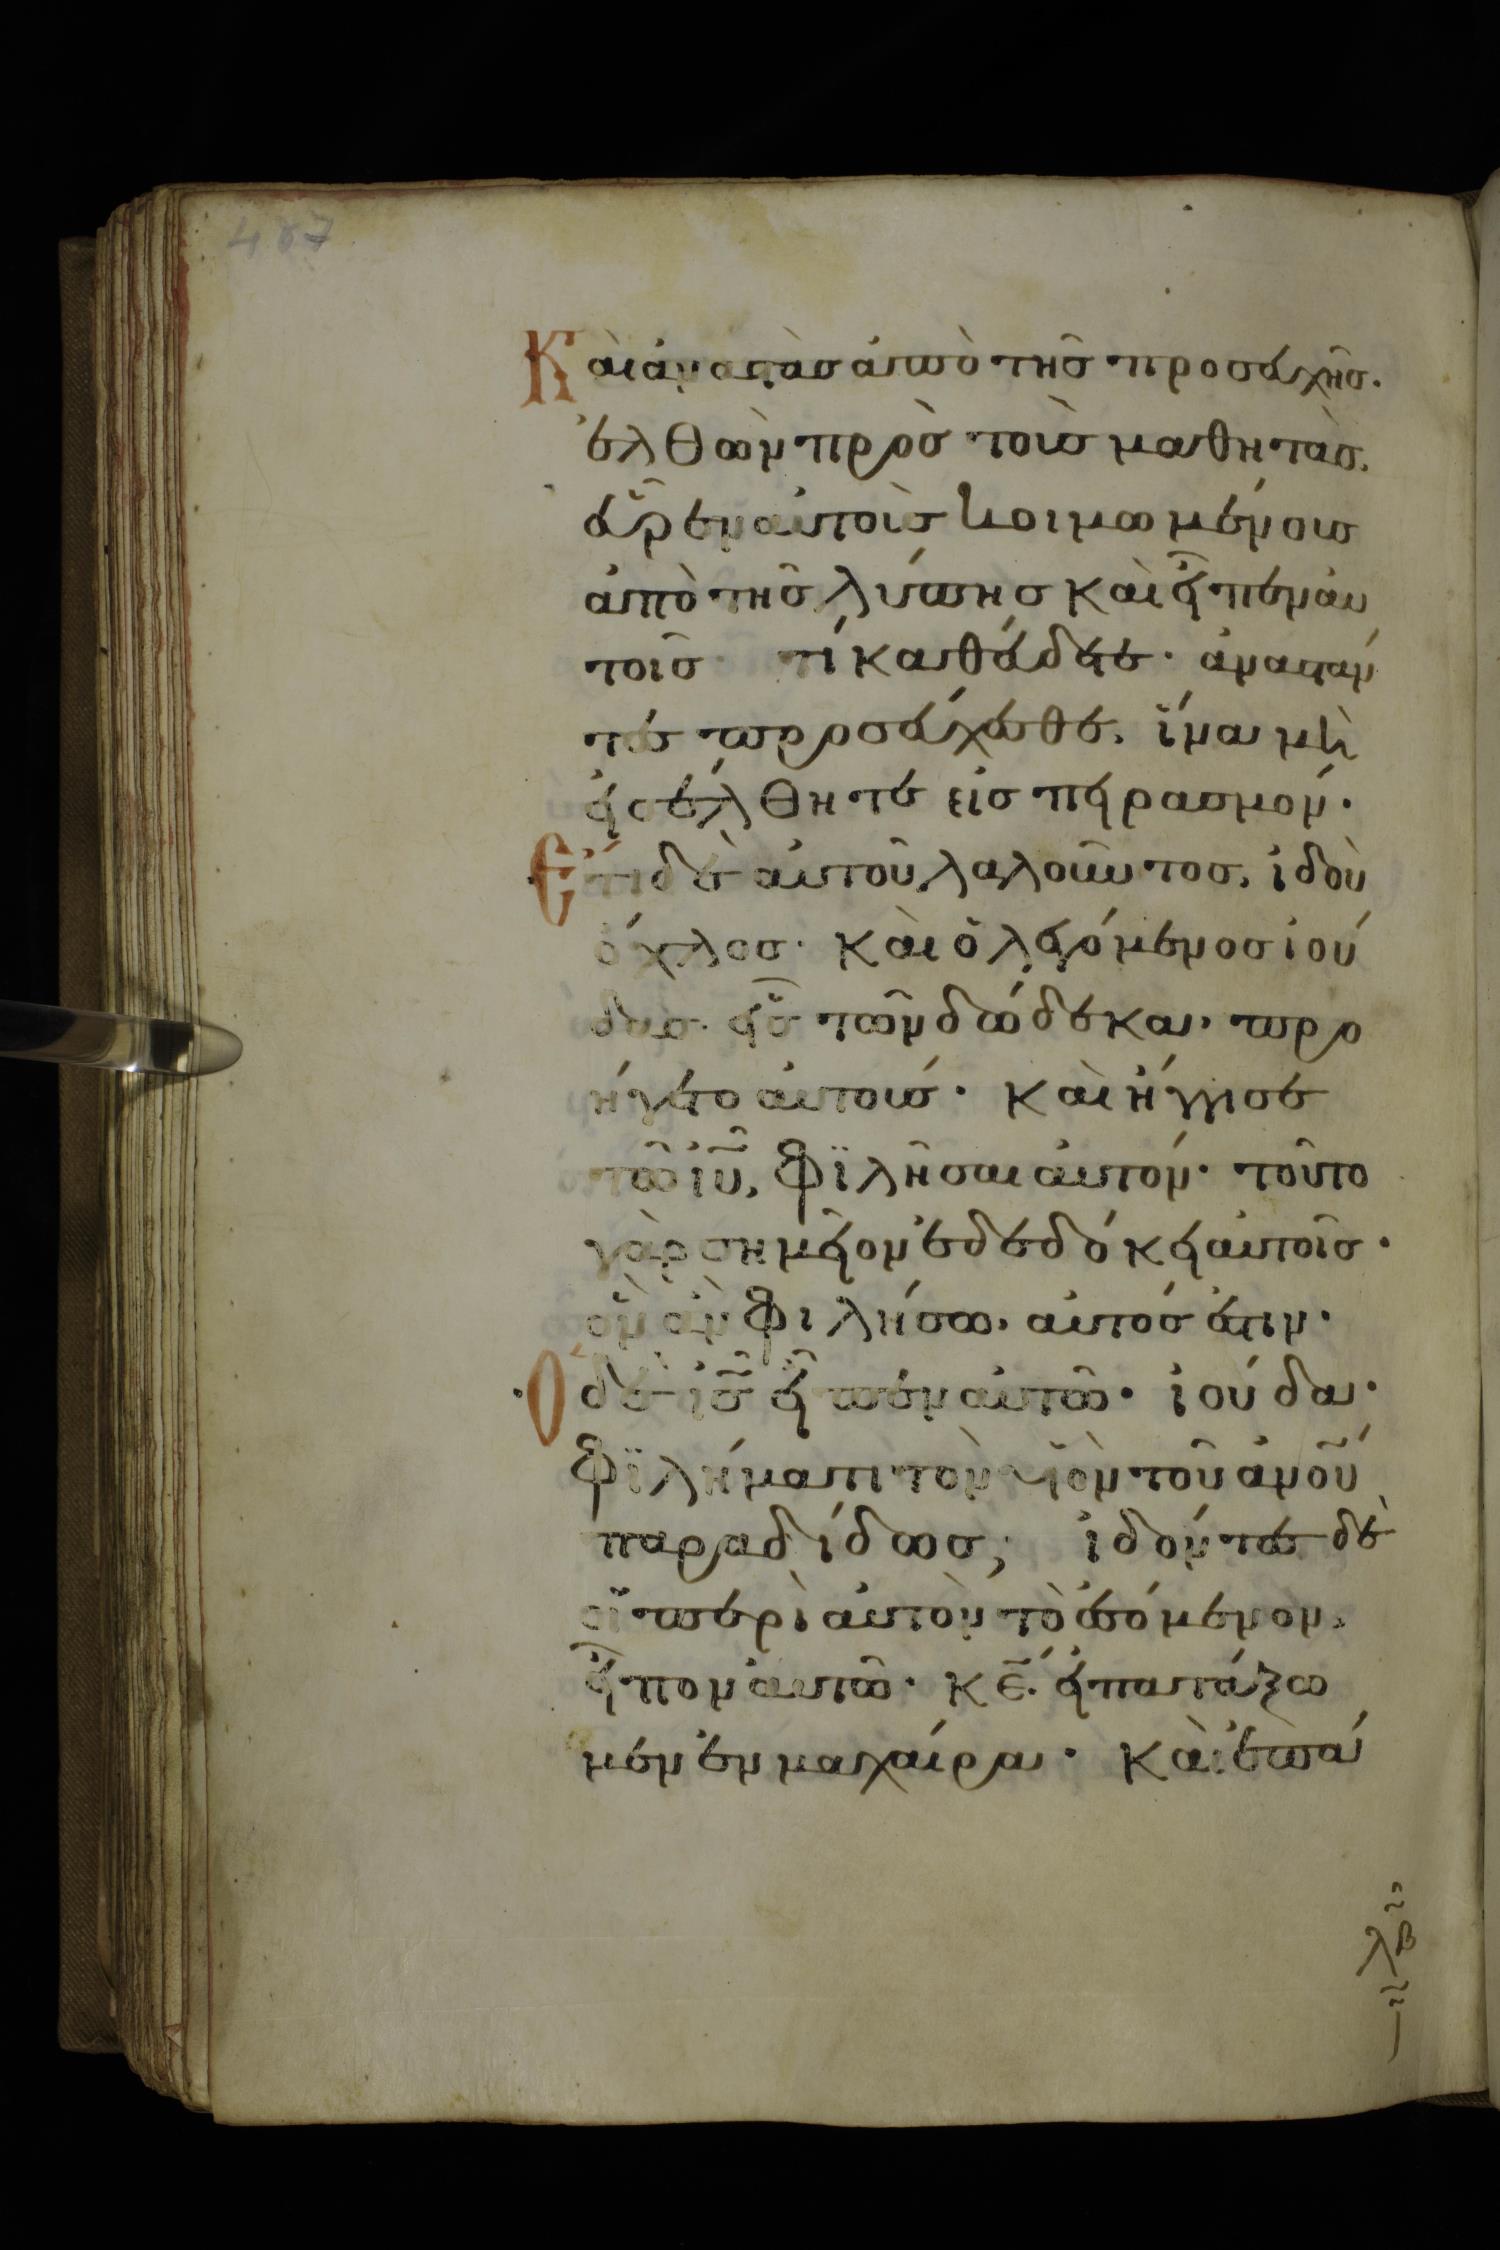 487
Καὶ ἀναστὰσ ἀπὸ τῆσ προσευχῆσ.
ἐλθὼν πρὸσ τοὺσ μαθητὰσ.
εὗρεν αὐτοὺσ κοιμωμένουσ
ἀπὸ τῆσ λύπησ καὶ εἶπεν αὐ
τοῖσ τί καθεύδετε· ἀναστάν
τεσ προσεύχεσθε. ἵνα μὴ
εἰσέλθητε εἰσ πειρασμόν·
Ἔτι δὲ αὐτοῦ λαλοῦντοσ. ἰδοὺ
ὄχλοσ· καὶ ὁ λεγόμενοσ ἰού
δασ· εἷσ τῶν δώδεκα· προ
ήγετο αὐτούσ· καὶ ἤγγισε
τῶ ἰῦ, φϊλῆσαι αὐτόν· τοῦτο
γὰρ σημεῖον ἐδεδόκει αὐτοῖσ·
ὃν ἂν φιλήσω· αὐτόσ ἐστιν·
Ὁ δὲ ἰσ̄ εἶπεν αὐτῶ· ἰούδα·
φϊλήματι τὸν υἱὸν τοῦ ἀνοῦ
παραδίδωσ; ἰδόντεσ δὲ
οἱ περὶ αὐτὸν τὸ ἐσόμενον.
εἶπον αὐτῶ· κε̄. εἰ πατάξω
μεν ἐν μαχαίρα· καὶ ἐπά
λβ